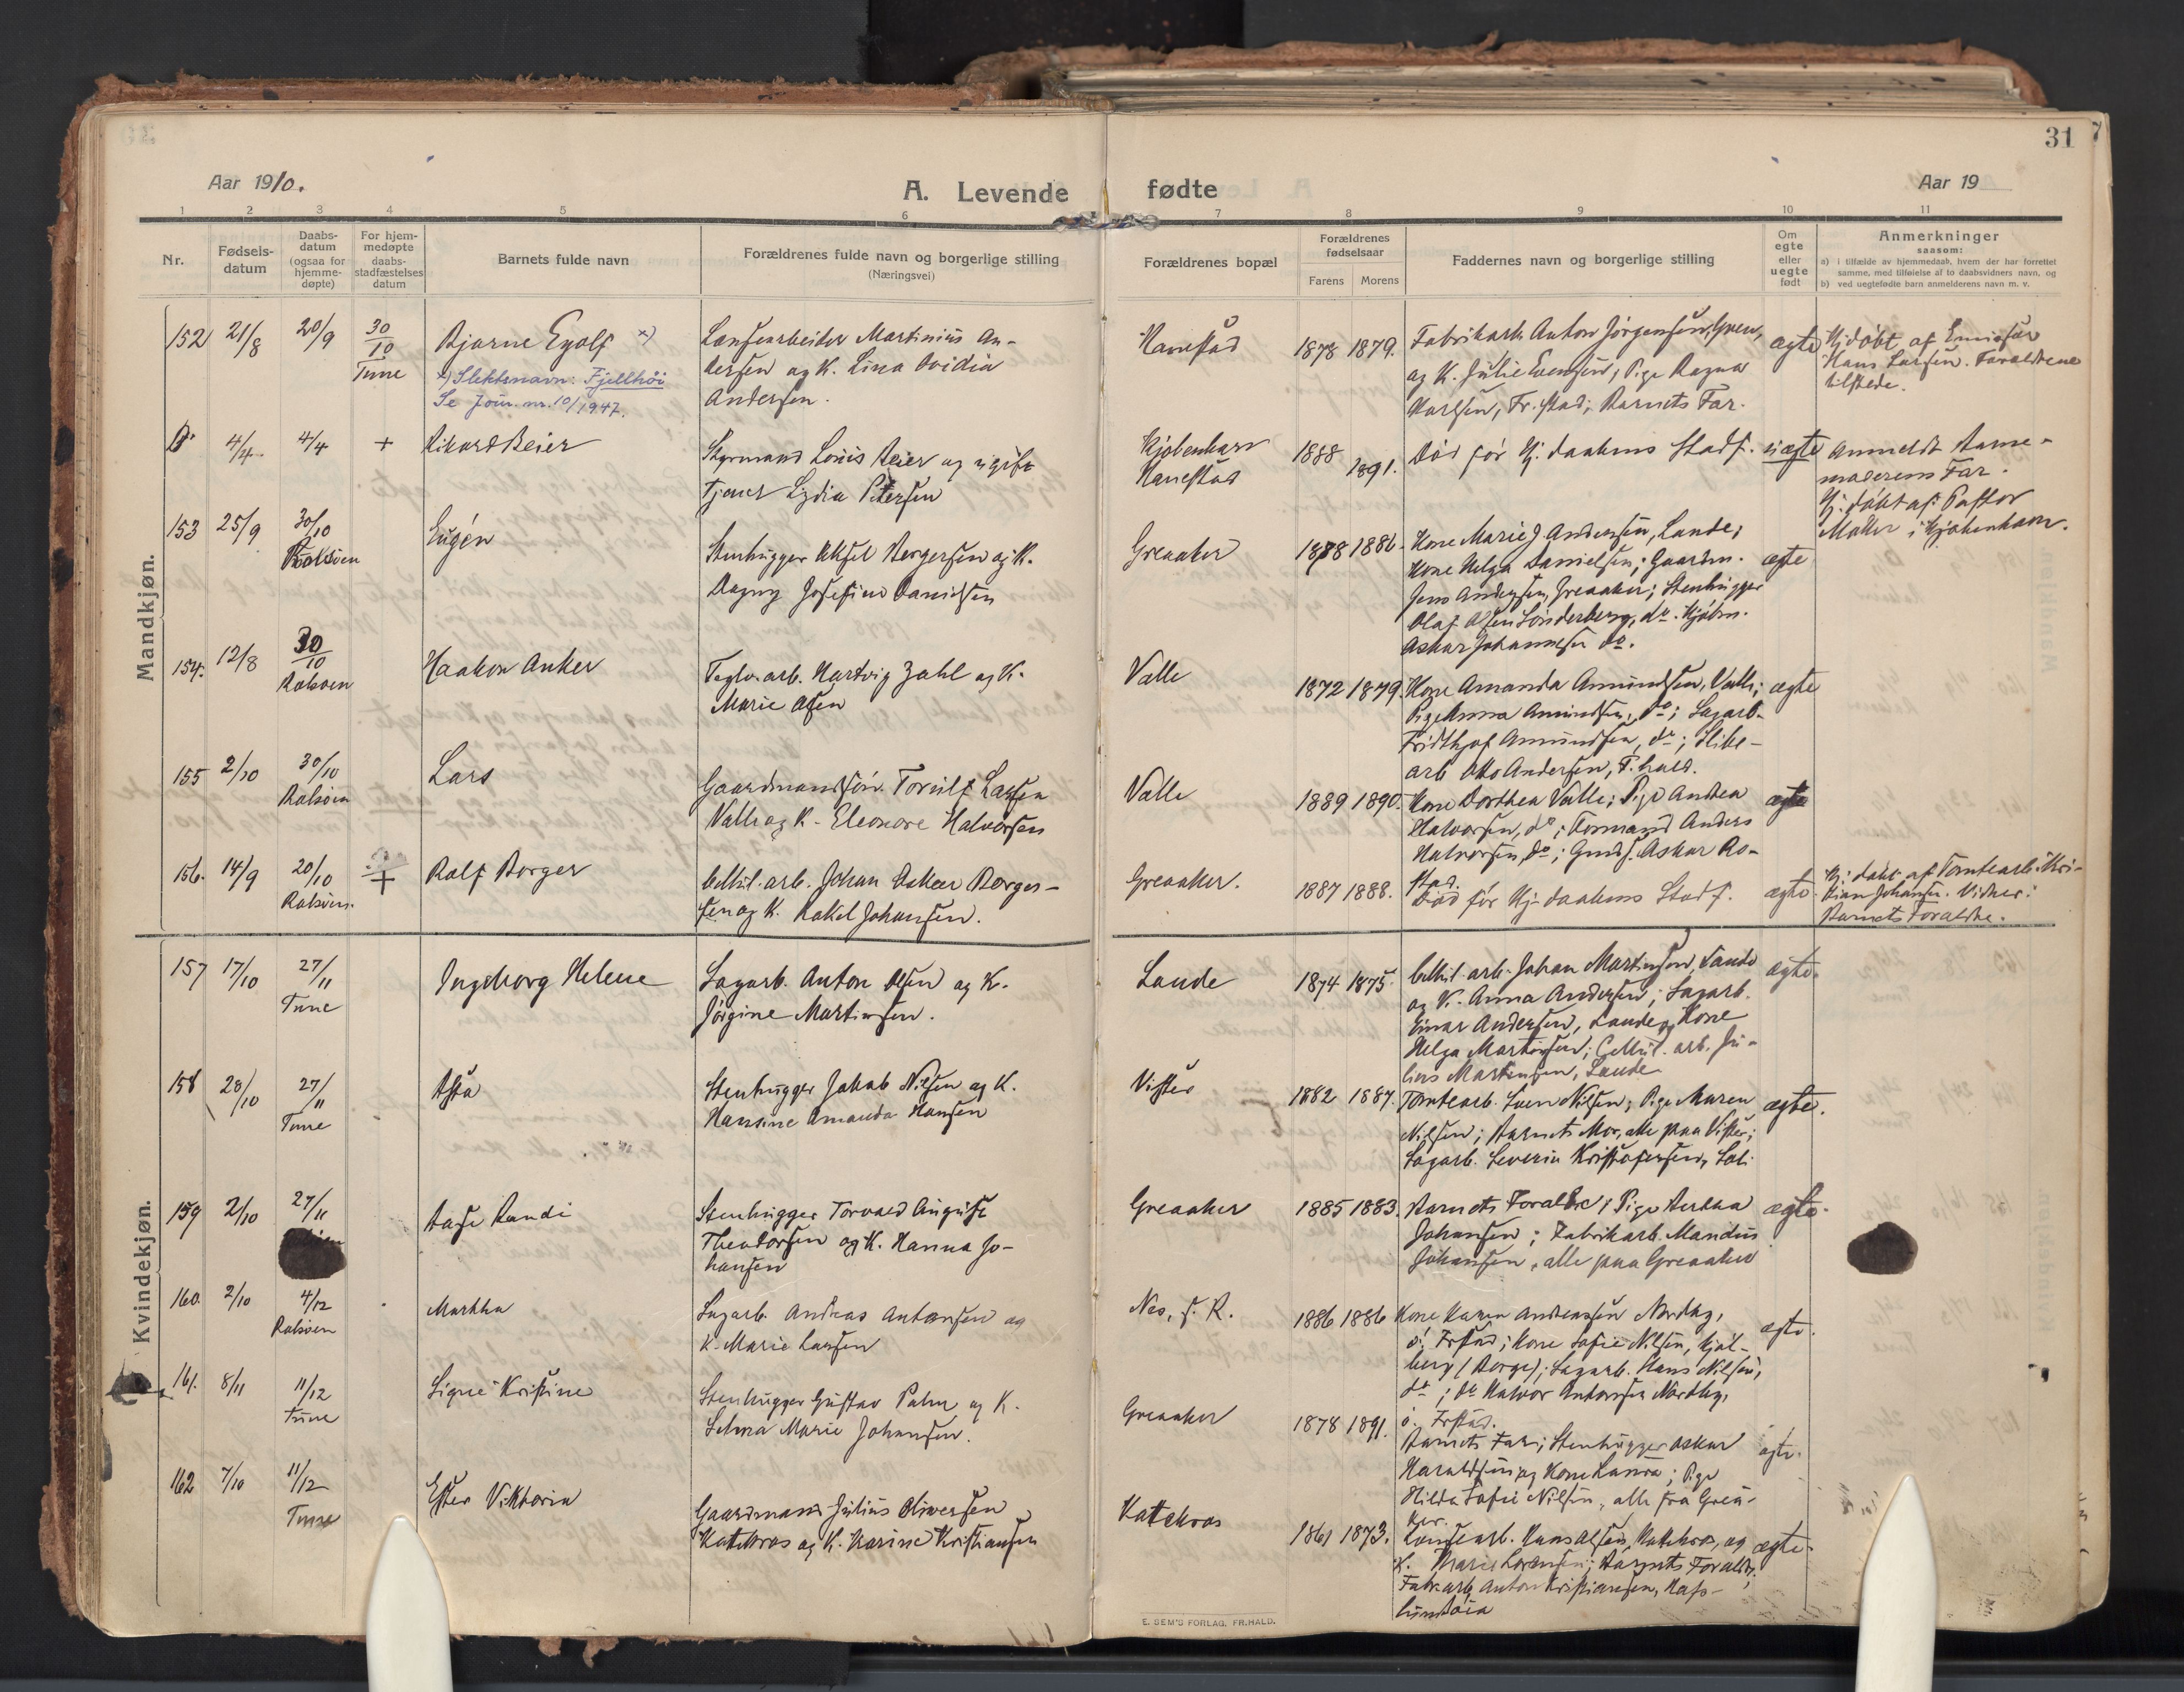 31
Aar 1910.
A. Levende fødte
Aar 19
1 2 3 4 5 6 7 8 9 10 11
Nr.
Fødsels-
datum
Daabs-
datum
(ogsaa for
hjemme-
døpte)
For hjem-
medøpte
daabs-
stadfæstelses
datum
Barnets fulde navn
Forældrenes fulde navn og borgerlige stilling
(Næringsvei)
Forældrenes bopæl
Forældrenes
fødselsaar
Farens Morens
Faddernes navn og borgerlige stilling
Om
egte
eller
uegte
født
Anmerkninger
saasom:
a) i tilfælde av hjemmedaab, hvem der har forrettet
samme, med tilføielse af to daabsvidners navn, og
b) ved uegtefødte barn anmelderens navn m. v.
Mandkjøn.
152 21/8 20/9 30/10
Tune
Bjarne Eyolf x)
x) Slektsnavn: Fjellhøi
Se Jour. nr. 10/1947.
Lænsearbeider Martinius An-
dersen og K. Lina Ovidia
Andersen.
Hanestad
1878 1879.
Fabrikarb. Anton Jörgensen, Green,
og K. Julie Evensen; Pige Ragna
Karlsen, Fr.stad; Barnets Far.
ægte
Hj.döbt af Emissær
Hans Larsen. Forældrene
tilstede.
4/4 4/4 +
Rikard Beier
Styrmand Louis Beier og ugift
Tjener Lydia Petersen
Kjöbenhavn
Hanestad
1888 1891.
Död för Hj. daabens Stadf.
uægte
Anmeldt Barne-
moderens Far.
Hj. döbt af Pastor
Møller i Kjøbenhavn.
153 25/9 30/10
Rolvsöen
Eugén
Stenhugger Aksel Borgersen og K.
Dagny Josefine Danielsen
Greaaker
1888 1886.
Kone Marie J. Andersen, Lande;
Kone Helga Danielsen; Gaardm.
Jens Andersen, Greaaker; Stenhugger
Olaf Olsen Sönderberg, do. Kjöbm.
Askar Johannesen do.
ægte
154. 12/8 30/10
Rolvsöen
Haakon Anker
Teglv.arb. Hartvig Zahl og K.
Marie Olsen
Valle
1872 1879.
Kone Amanda Amundsen, Valle;
Pige Anna Amundsen, do; Sagarb.
Fridthjof Amundsen, do; Slibe-
arb Otto Andersen, F.hald.
ægte
155 2/10 30/10
Rolvsöen
Lars
Gaardmandssön Torulf Larsen
Valle og K. Eleonore Halvorsen
Valle
1889 1890.
Kone Dorthea Valle; Pige Andrea
Halvorsen, do; Formand Anders
Halvorsen, do; Gmds. Askar Ro-
stad.
ægte
156. 14/9 20/10 +
Rolvsöen.
Ralf Borger
Cellul. arb. Johan Oskar Borger-
sen og K. Rakel Johansen.
Greaaker.
1887 1888.
Död för Hj. daabens Stadf.
ægte.
Hj. döbt af Tomtearb. Kri-
stian Johansen. Vidner:
Barnets Forældre.
Kvindekjøn.
157 17/10 27/11
Tune
Ingeborg Helene
Sagarb. Anton Olsen og K.
Jörgine Martinsen.
Lande
1874 1875.
Cellul. arb. Johan Martinsen, Lande
og K. Anna Andersen; Sagarb.
Einar Andersen, Lande, og Kone
Helga Martinsen; Cellul. arb. Ju-
lius Martinsen, Lande
ægte.
158 28/10 27/11
Tune
Asta
Stenhugger Jakob Nilsen og K.
Hansine Amanda Hansen
Vister
1882 1887.
Tomtearb. Sven Nilsen; Pige Maren
Nilsen; Barnets Mor, alle paa Vister;
Sagarb. Severin Kristofersen, Sol.
ægte.
159 2/10 27/11
Aase Randi
Stenhugger Torvald August
Theodorsen og K. Hanna Jo-
hansen
Greaaker
1885 1883.
Barnets Forældre; Pige Bertha
Johansen; Fabrikarb. Mandus
Johansen, alle paa Greaaker
ægte.
160. 2/10 4/12
Rolvsöen
Martha
Sagarb. Andreas Antonsen og
K. Marie Larsen
Nes, f. R.
1886 1886
Kone Karen Andreassen Nordby,
ö. Fr.stad; Kone Sofie Nilsen, Kjöl-
berg (Borge); Sagarb. Hans Nilsen,
do; do Halvor Antonsen Nordby,
ö. Frstad.
ægte.
161. 8/11 11/12
Tune
Signe Kristine
Stenhugger Gustav Palm og K.
Selma Marie Johansen.
Greaaker
1878 1891.
Barnets Far; Stenhugger Oskar
Haraldsen og Kone Laura; Pige
Hilda Sofie Nilsen, alle fra Greaa-
ker.
ægte.
162 7/10 11/12
Tune
Ester Viktoria
Gaardmand Julius Oliversen
Katekros og K. Karine Kristiansen
Katekros
1861 1873.
Lænsearb. Hans Olsen, Katekros, og
K. Marie Lorensen; Barnets Forældre;
Fabr.arb. Anton Kristiansen, Hafs-
lundsöia
ægte.
E. SEM'S FORLAG, FR.HALD.